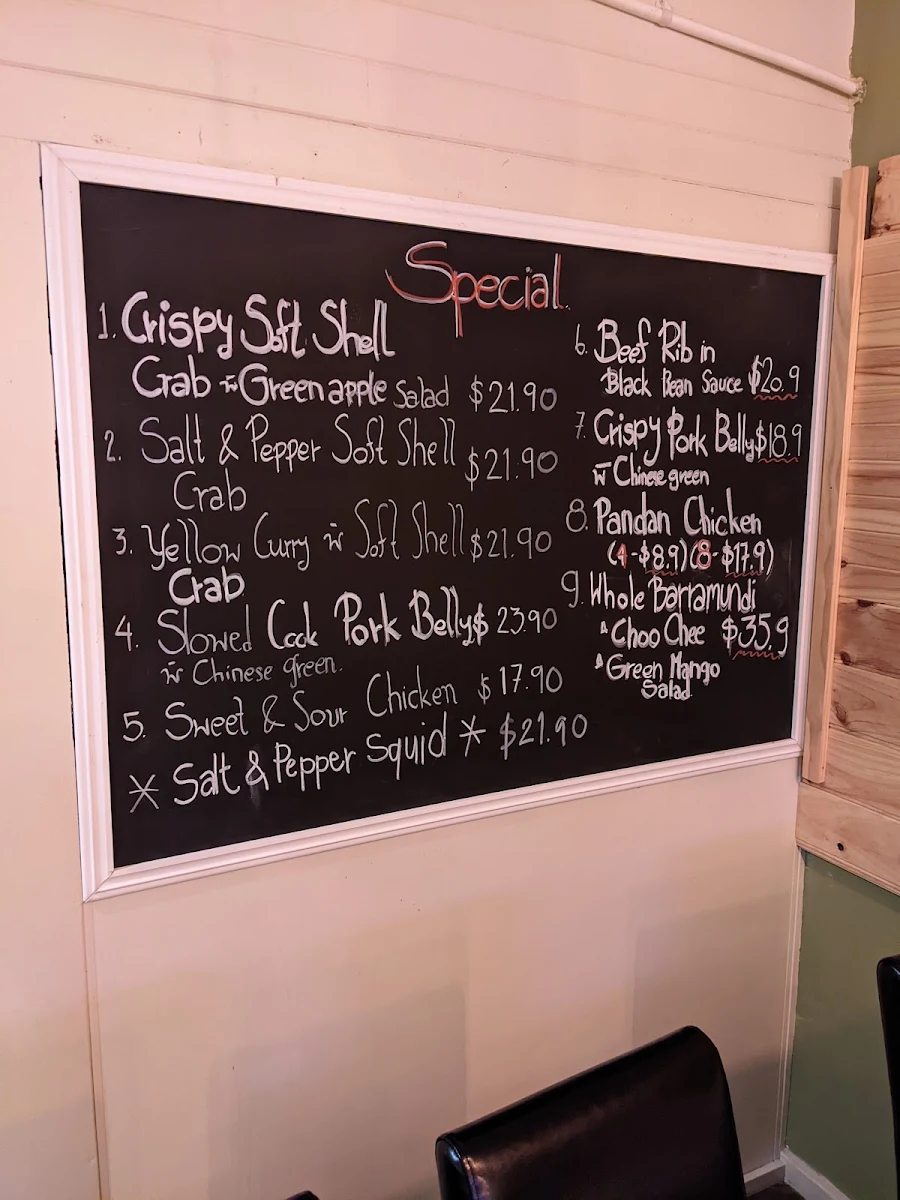 Special.
1. Crispy Soft Shell
Crab w Green apple Salad $21.90
2. Salt & Pepper Soft Shell $21.90
Crab
3. Yellow Curry w Soft Shell $21.90
Crab
4. Slowed Cook Pork Belly $23.90
w Chinese green.
5. Sweet & Sour Chicken $17.90
* Salt & Pepper Squid * $21.90
6. Beef Rib in
Black Bean Sauce $20.9
7. Crispy Pork Belly $18.9
w Chinese green
8. Pandan Chicken
(4-$8.9)(8-$17.9)
9. Whole Barramundi
Choo Chee $35.9
Green Mango
Salad